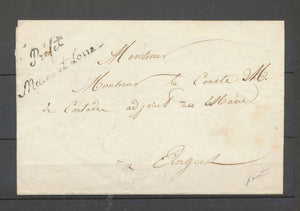 Préfet
Maine et Loire
Monsieur
Monsieur le Comte M.
de Contades adjoint au Maire
à Angers